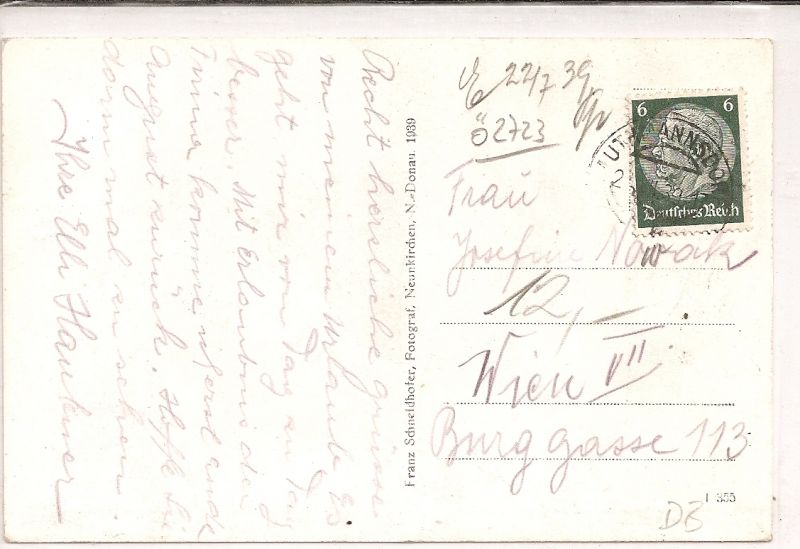 Recht herzliche Grüsse
von meinem Urlaube. Es
geht mir von Tag zu Tag
besser. Mit Erlaubnis der
Firma komme ich erst Ende
August zurück. Hoffe Sie
dann mal zu sehen.
Ihre Elli
Franz Schmeidhofer, Fotograf, Neunkirchen, N.-Donau. 1939
E 22/7 39
Ö 2723
6 6
Deutsches Reich
Frau
Josefine Nowak
12,–
Wien VII
Burggasse 113
I 355
DB